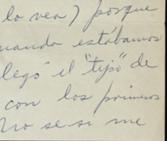 lo vea) porque
uando estábamos
llegó el "tipo" de
con los primeros
No se si me